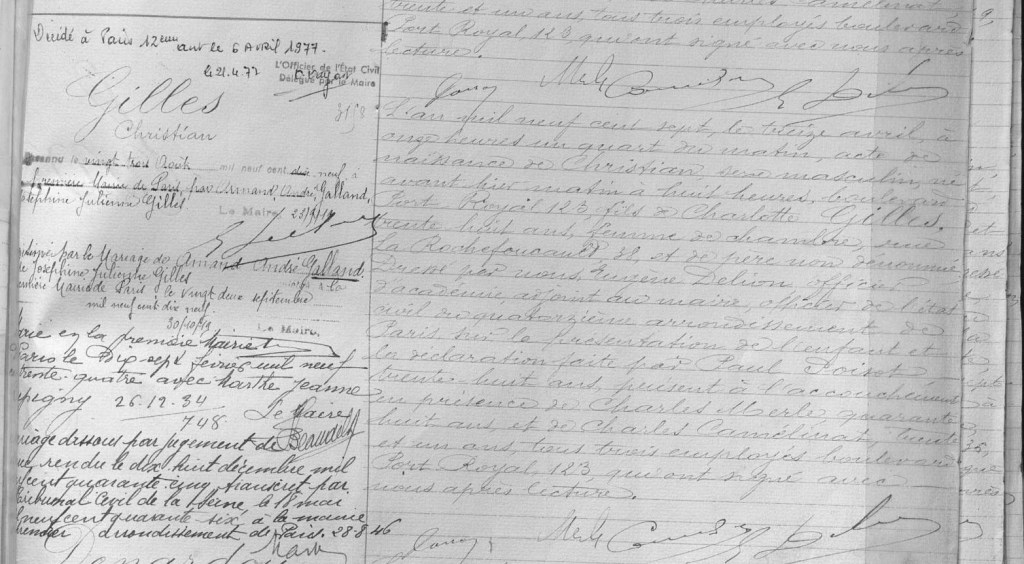 Décédé à Paris 12ème
le 6 Avril 1977.
le 21.4.77
L'Officier de l'Etat Civil
Délégué par le Maire
Gilles
Christian
3153
le vingt trois Août mil neuf cent dix neuf à
première Mairie de Paris, par Amand, André, Galland,
Julienne Gilles
Le Maire 
par le Mariage de Amand André Galland,
Joséphine Julienne Gilles à la
Mairie de Paris, le vingt deux septembre
mil neuf cent dix neuf.
30/10/19 Le Maire,
en la première Mairie
Paris le Dix sept février mil neuf
trente quatre avec Marthe Jeanne
26.12.34
748. Le Maire
dissous par jugement de
rendu le dix huit décembre mil
cent quarante cinq, transcrit par
Tribunal Civil de la Seine, le mai
neuf cent quarante six, à la mairie
arrondissement de Paris. 28.8.46
trente et un ans, tous trois employés boulevard
Port Royal 123 qui ont signé avec nous après
lecture.
L'an mil neuf cent sept, le treize avril, à
onze heures un quart du matin, acte de
naissance de Christian, sexe masculin, né
avant hier matin à huit heures, boulevard
Port Royal 123, fils de Charlotte Gilles,
trente huit ans, femme de chambre, rue
La Rochefoucault 32, et de père non dénommé.
Dressé par nous, Eugène Delion, officier
d'académie, adjoint au maire, officier de l'état
civil du quatorzième arrondissement de
Paris, sur la présentation de l'enfant et
la déclaration faite par Paul Poisot
trente huit ans, présent à l'accouchement
en présence de Charles Merle quarante
huit ans et de Charles Camélinat, trente
et un ans, tous trois employés boulevard
Port Royal 123, qui ont signé avec
nous après lecture.